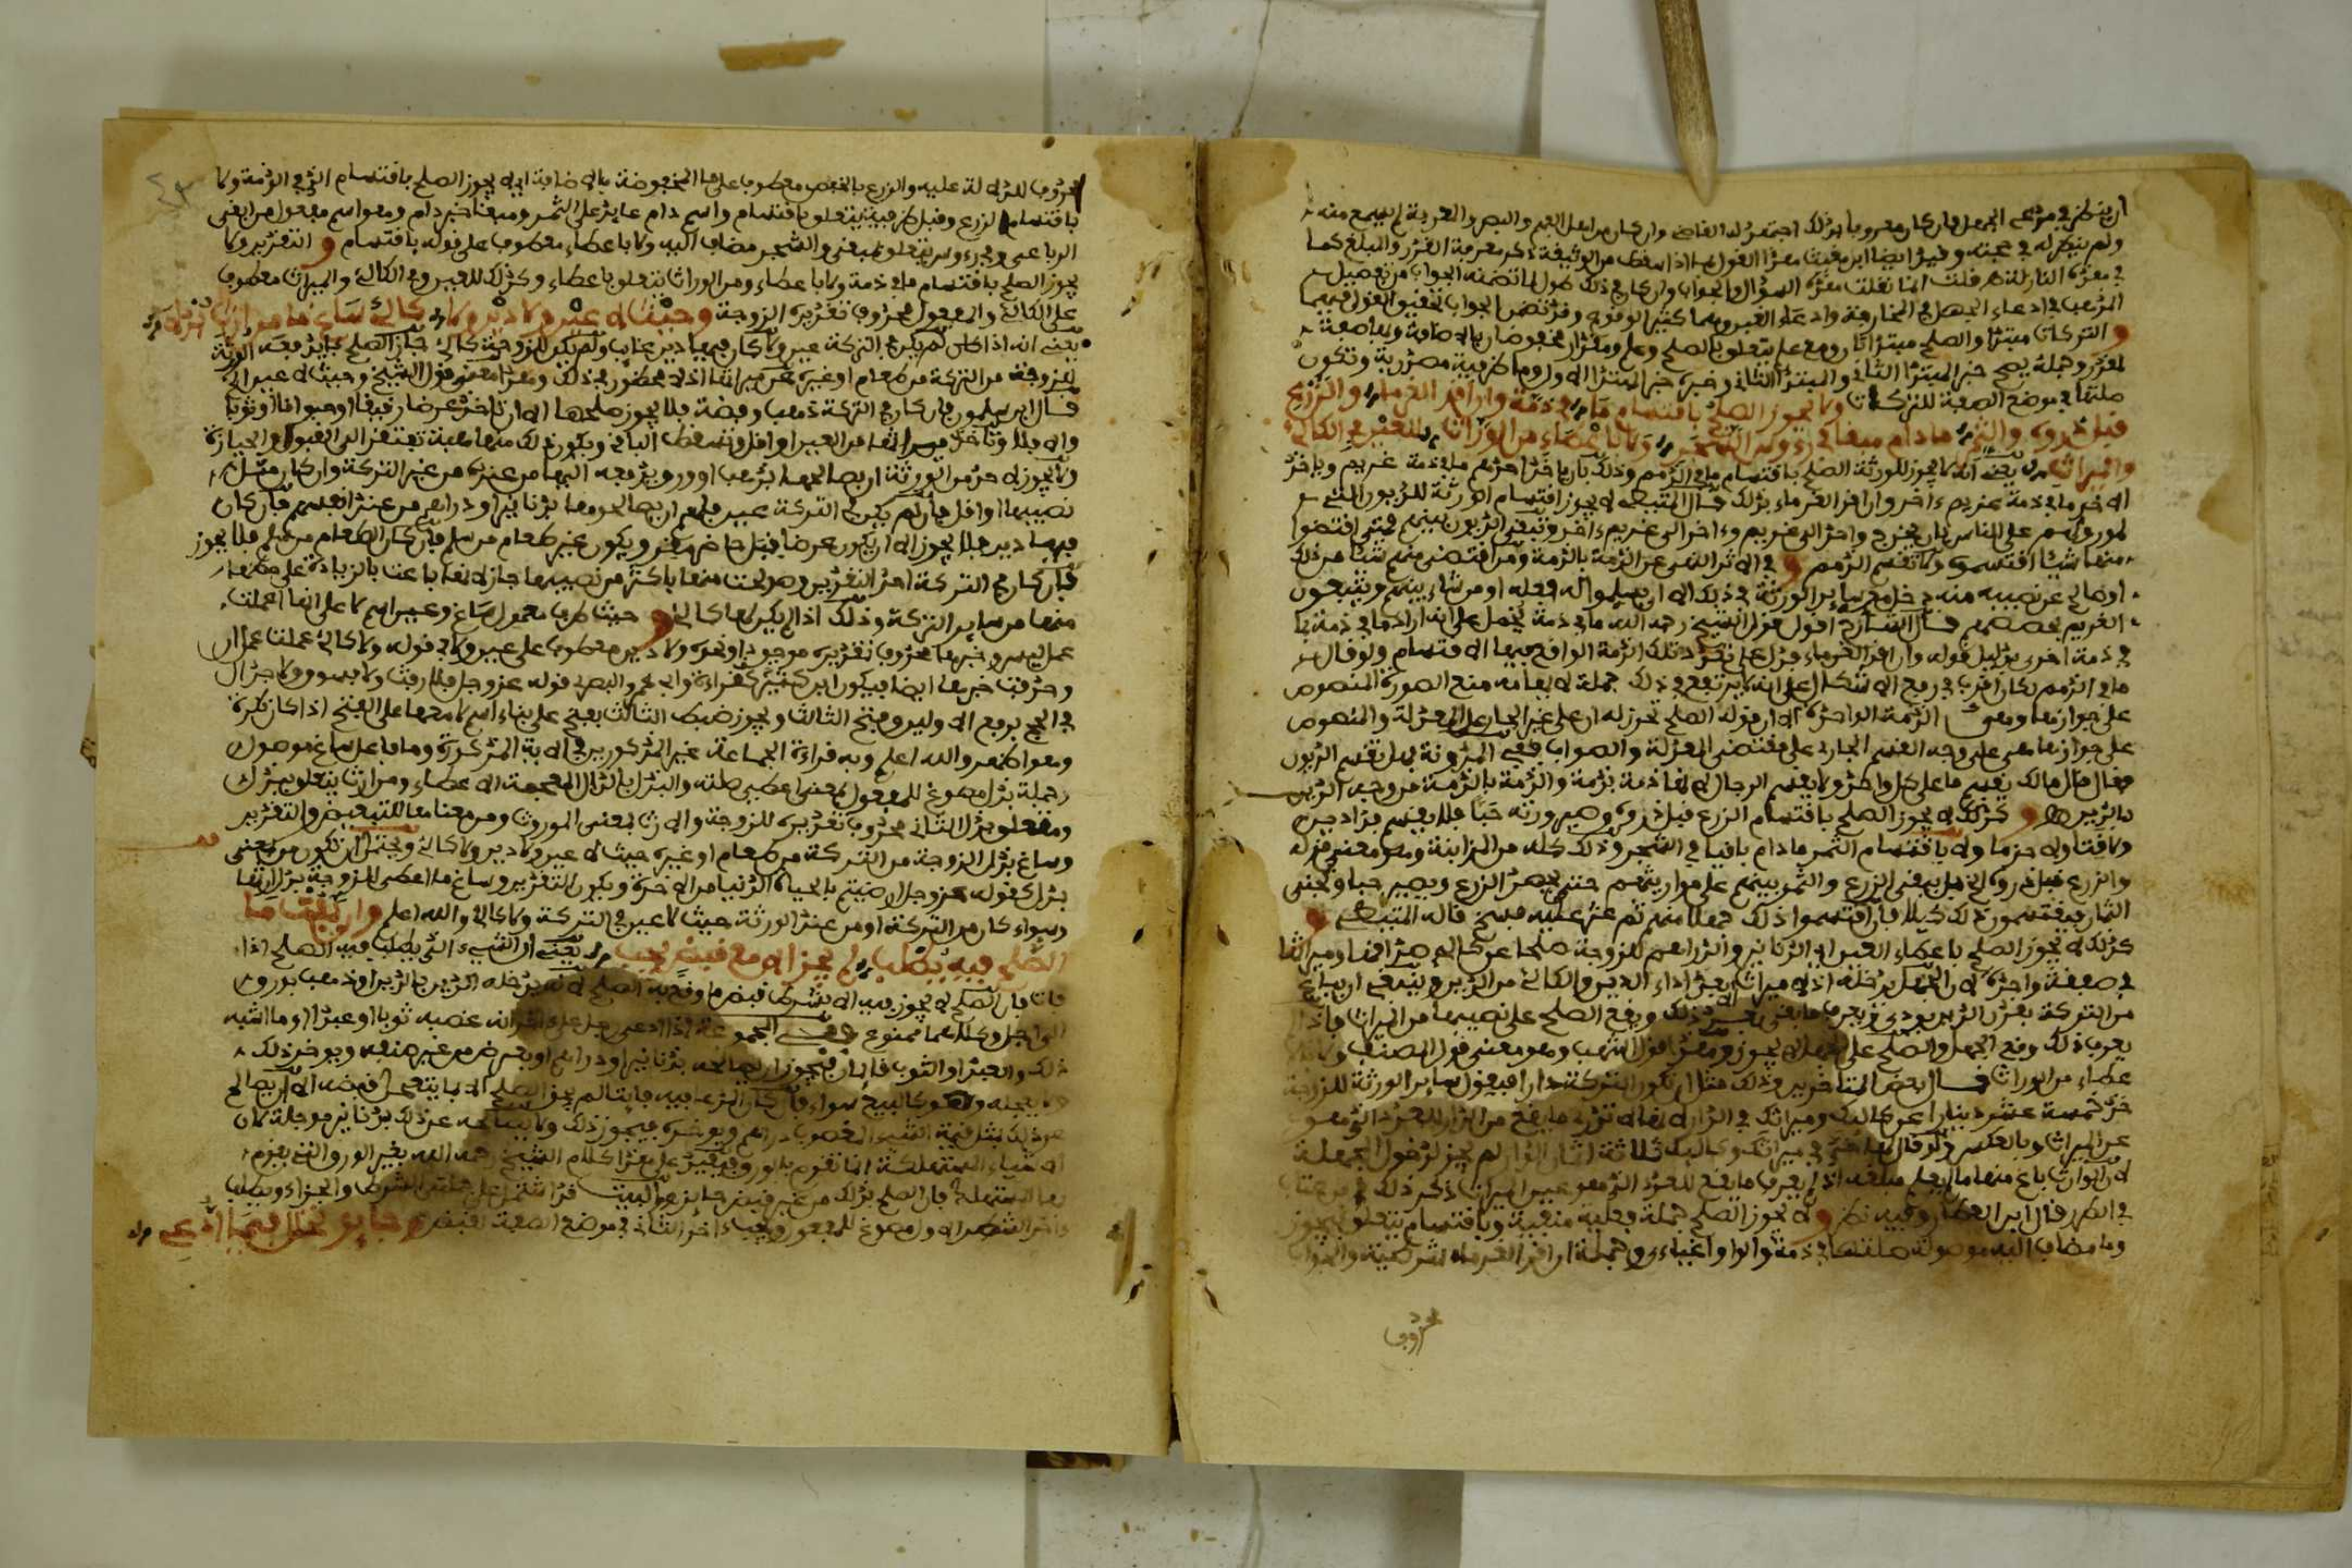 ان ينظر في مدعى الجهل فان كان معروفا بذلك اجتهد له القاضي وان كان من اهل الفهم والبصر والمعرفة لم يسمع منه
ولم ينظر له في غبنه وقيد ايضا ابن مغيث هذا القول بما اذا سقط من الوثيقة ذكر معرفة القدر والمبلغ كما
في هذه النازلة قلت انما نقلت هذه السؤال والجواب وان كان في ذلك طول لما تضمنه الجواب من تفصيل
المذهب في ادعاء الجهل في المخارجة وادعاء الغبن وهما كثير الوقوع وقد تضمن الجواب تحقيق القول فيهما
و التركات مبتدا والصلح مبتدا ثان ومع علم يتعلق بالصلح وعلم ومقدار مخفوضان بالاضافة وبعاصفة
لمقدر وجملة يصح خبر المبتدا الثاني والمبتدا الثاني وخبره خبر المبتدا الاول وما ظرفية مصدرية وتكون
صلتها في موضع الصفة للتركات ولا يجوز الصلح باقتسام ما في ذمة وان اقر الغرما والزرع
قبل ذروه والثمر ما دام مبقا في رءوس الشجر ولا باعطاء من الوراث للعين في الكالئ
والميراث يعني انه لا يجوز للورثة الصلح باقتسام ما في الذمم وذلك بان ياخذ احدهم ما في ذمة غريم وياخذ
الاخر ما في ذمة غريم ءاخر وان اقر الغرماء بذلك قال المتيطي لا يجوز اقتسام الورثة للديون التي
لموروثهم على الناس بان يخرج واحد الى غريم وءاخر الى غريم ءاخر وتبقى الديون بينهم فمتى اقتضوا
منها شيئا اقتسموه ولا تقسم الذمم و في الاثر النهي عن الذمة بالذمة ومن اقتضى منهم شيئا من ذلك
او صالح عن نصيبه منه دخل معه سائر الورثة في ذلك الا ان يسلموا له فعله او من شاء منهم ويتبعون
الغريم بحصصهم قال الشارح اقول قول الشيخ رحمه الله ما في ذمة يحمل على انه اراد ما في ذمة بما
في ذمة اخرى بدليل قوله وان اقر الغرماء فدل على تعدد تلك الذمة الواقع فيها الاقتسام ولو قال
ما في الذمم لكان اقرب في رفع الاشكال على انه لا يرتفع في ذلك جملة لابهامه منع الصورة المنصوص
على جوازها وهي الذمة الواحدة الا ان قوله الصلح تحرز له ان على غير الجاري على المعدلة والمنصوص
على جوازها هي على وجه القسم الجاري على مقتضى المعدلة والصواب ففي المدونة هل تقسم الديون
فقال قال مالك يقسم ما على كل واحد ولا يقسم الرجال لانها ذمة بذمة والذمة بالذمة من وجه الدين
بالدين و كذلك لا يجوز الصلح باقتسام الزرع قبل ذروه وصيرورته حبا فلا يقسم فدادين
ولا قتا ولا حزما ولا باقتسام الثمر ما دام باقيا في الشجر وذلك كله من المزابنة وهو معنى قوله
والزرع قبل ذروه الخ بل يبقى الزرع والثمر بينهم على مواريثهم حتى يحصد الزرع ويصير حبا وتجنى
الثمار فيقتسمون ذلك كيلا فان اقتسموا ذلك جهلا منهم ثم عثر عليه فسخ قاله المتيطي و
كذلك لا يجوز الصلح باعطاء العين اي الدنانير والدراهم للزوجة صلحا عن كالئ صداقها وميراثها
في صفقة واحدة لان الجهل يدخله اذ لا ميراث الا بعد اداء الدين والكالئ من الدين وينبغي ان يباع
من التركة بقدر الدين يودى ثم يعرف ما بقي بعد ذلك ويقع الصلح على نصيبها من الميراث فاذا لم
يعرف ذلك وقع الجهل والصلح على الجهل لا يجوز وهذا قول اشهب وهو معنى قول المصنف ولا
عطاء من الوراث قال بعض المتاخرين وذلك مثل ان تكون التركة دارا فيقول سائر الورثة للزوجة
خذ خمسة عشر دينارا عن كالئك وميراثك في الدار لانها لا تدري ما يقع من الدار للعدد الذي هو
عن الميراث وبالعكس ولو قال لها خذي في ميراثك وكالئك ثلاثة اثمان الدار لم يجز لدخول الجملة
لان الوارث باع منها ما لا يعلم مبلغه اذ لم يعرف ما يقع للعدد الذي هو عين الميراث ذكر ذلك
في الطرر قال ابن العطار وفيه نظر و لا يجوز الصلح جملة فعلية منفية وباقتسام يتعلق بيجوز
وما مضاف اليه موصولة صلتها في ذمة والواو اغياء وجملة ان اقر الغرماء شرطية والجواب
محذوف
محذوف للدلالة عليه والزرع بالخفض معطوف على ما المخفوضة بالاضافة اي لا يجوز الصلح باقتسام الذي في الذمة ولا
باقتسام الزرع وقبل ظرفية يتعلق باقتسام واسم دام عايد على الثمر ومبقا خبر دام وهو اسم مفعول من ابقى
الرباعي وفي رءوس يتعلق بمبقى والشجر مضاف اليه ولا باعطاء معطوف على قوله باقتسام و التقدير ولا
يجوز الصلح باقتسام ما في ذمة ولا باعطاء ومن الوراث يتعلق باعطاء وكذلك للعين وفي الكالئ والميراث معطوف
على الكالئ والمفعول محذوف تقديره الزوجة وحيث لا عين ولا دين ولا كالئ ساغ ما من ارث بذلا
يعني انه اذا لم يكن في التركة عين ولا كان فيها دين غايب ولم يكن للزوجة كالئ جاز الصلح بما يدفعه الورثة
للزوجة من التركة من طعام او غيره عن ميراثها اذ لا محظور في ذلك وهذا معنى قول الشيخ وحيث لا عين الخ
قال ابن سلمون فان كان في التركة ذهب وفضة فلا يجوز صلحها الا ان تاخذ عرضا رقيقا او حيوانا او ثوبا
والا فلا وتاخذ ميراثها من العين او اقل وتسقط الباقي ويكون ذلك منها هبة تفتقر الى القبول والحيازة
ولا يجوز لاحد من الورثة ان يصالحها بذهب او ورق يدفعه اليها من عنده من غير التركة وان كان مثل
نصيبها او اقل فان لم يكن في التركة عين فلهم ان يصالحوها بدنانير او دراهم من عند انفسهم فان كان
فيها دين فلا يجوز الا ان يكون عرضا قبل حاضر مقر ويكون غير طعام من سلم فان كان الطعام من سلم فلا يجوز
فان كان في التركة احد النقدين وصولحت منها باكثر من نصيبها جاز لانها باعت بالزيادة على حظها
منها من ساير التركة وذلك اذا لم يكن لها كالئ و حيث ظرف معمول ساغ وعين اسم لا على انها اعملت
عمل ليس وخبرها محذوف تقديره موجودا ونحوه ولا دين معطوف على عين ولا في قوله ولا كالئ عملت عمل ان
وحذفت خبرها ايضا فيكون ابن كثير كقراءة وابي عمرو البصري قوله عز وجل فلا رفث ولا فسوق ولا جدال
في الحج برفع الاولين وفتح الثالث ويجوز ضبط الثالث بفتح على بناء اسم لا معها على الفتح اذا كان نكرة
وهو اظهر والله اعلم وبه قراءة الجماعة غير المذكورين في الاية المذكورة وما فاعل ساغ موصول
وجملة بذل مصوغ للمفعول بمعنى اعطي صلته والبذل بالذال المعجمة الاعطاء ومن ارث يتعلق ببذل
ومفعول بذل الثاني محذوف تقديره للزوجة والارث بمعنى الموروث ومن معناها للتبعيض والتقدير
وساغ بذل الزوجة من التركة من طعام او غيره حيث لا عين ولا دين ولا كالئ ويحتمل ان تكون من بمعنى
بدل كقوله عز وجل ارضيتم بالحياة الدنيا من الاخرة ويكون التقدير وساغ ما اعطي للزوجة بدل ارثها
وسواء كان من التركة او من عند الورثة حيث لا عين في التركة ولا كالئ والله اعلم وان يفت ما
الصلح فيه يطلب لم يجز الا مع قبض يجب يعني ان الشيء الذي يطلب فيه الصلح اذا
فات فان الصلح لا يجوز فيه الا بشرط قبض ما وقع به الصلح لانه يدخله الدين بالدين او ذهب بورق
الى اجل وكلاهما ممنوع ففي المجموعة اذا ادعى رجل على اخر انه غصبه ثوبا او عبدا او ما اشبه
ذلك والعبد او الثوب قائمان فيجوز ان يصالحه بدنانير او دراهم او بعرض من غير صنفه ويوخر ذلك
ولا يعجله وهو كالبيع سواء فان كان المدعا فيه فايتا لم يجز الصلح الا بما يتعجل قبضه الا ان يصالح
عن ذلك بمثل قيمة الشيء المغصوب دراهم ويوخره فيجوز ذلك ولا يصالحه عن ذلك بدنانير موجلة لان
الاشياء المستهلكة انما تقوم بالورق فيقيد على هذا كلام الشيخ رحمه الله بغير الورق الذي يقوم
بها المستهلك فان الصلح بذلك من غير قبض جايز والبيت قد اشتمل على جملتي الشرط والجزاء ويطلب
ءاخر الشطر الاول مصوغ للمفعول ويجب ءاخر الثاني في موضع الصفة لقبض وجايز تحلل فيما ادعي